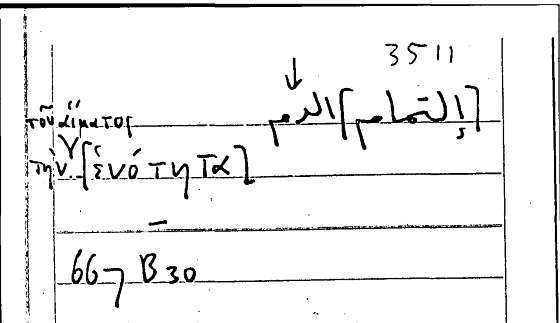 3511
[إلتمام] الدم
τοῦ αἵματος
τὴν [ἑνότητα]
667 B 30